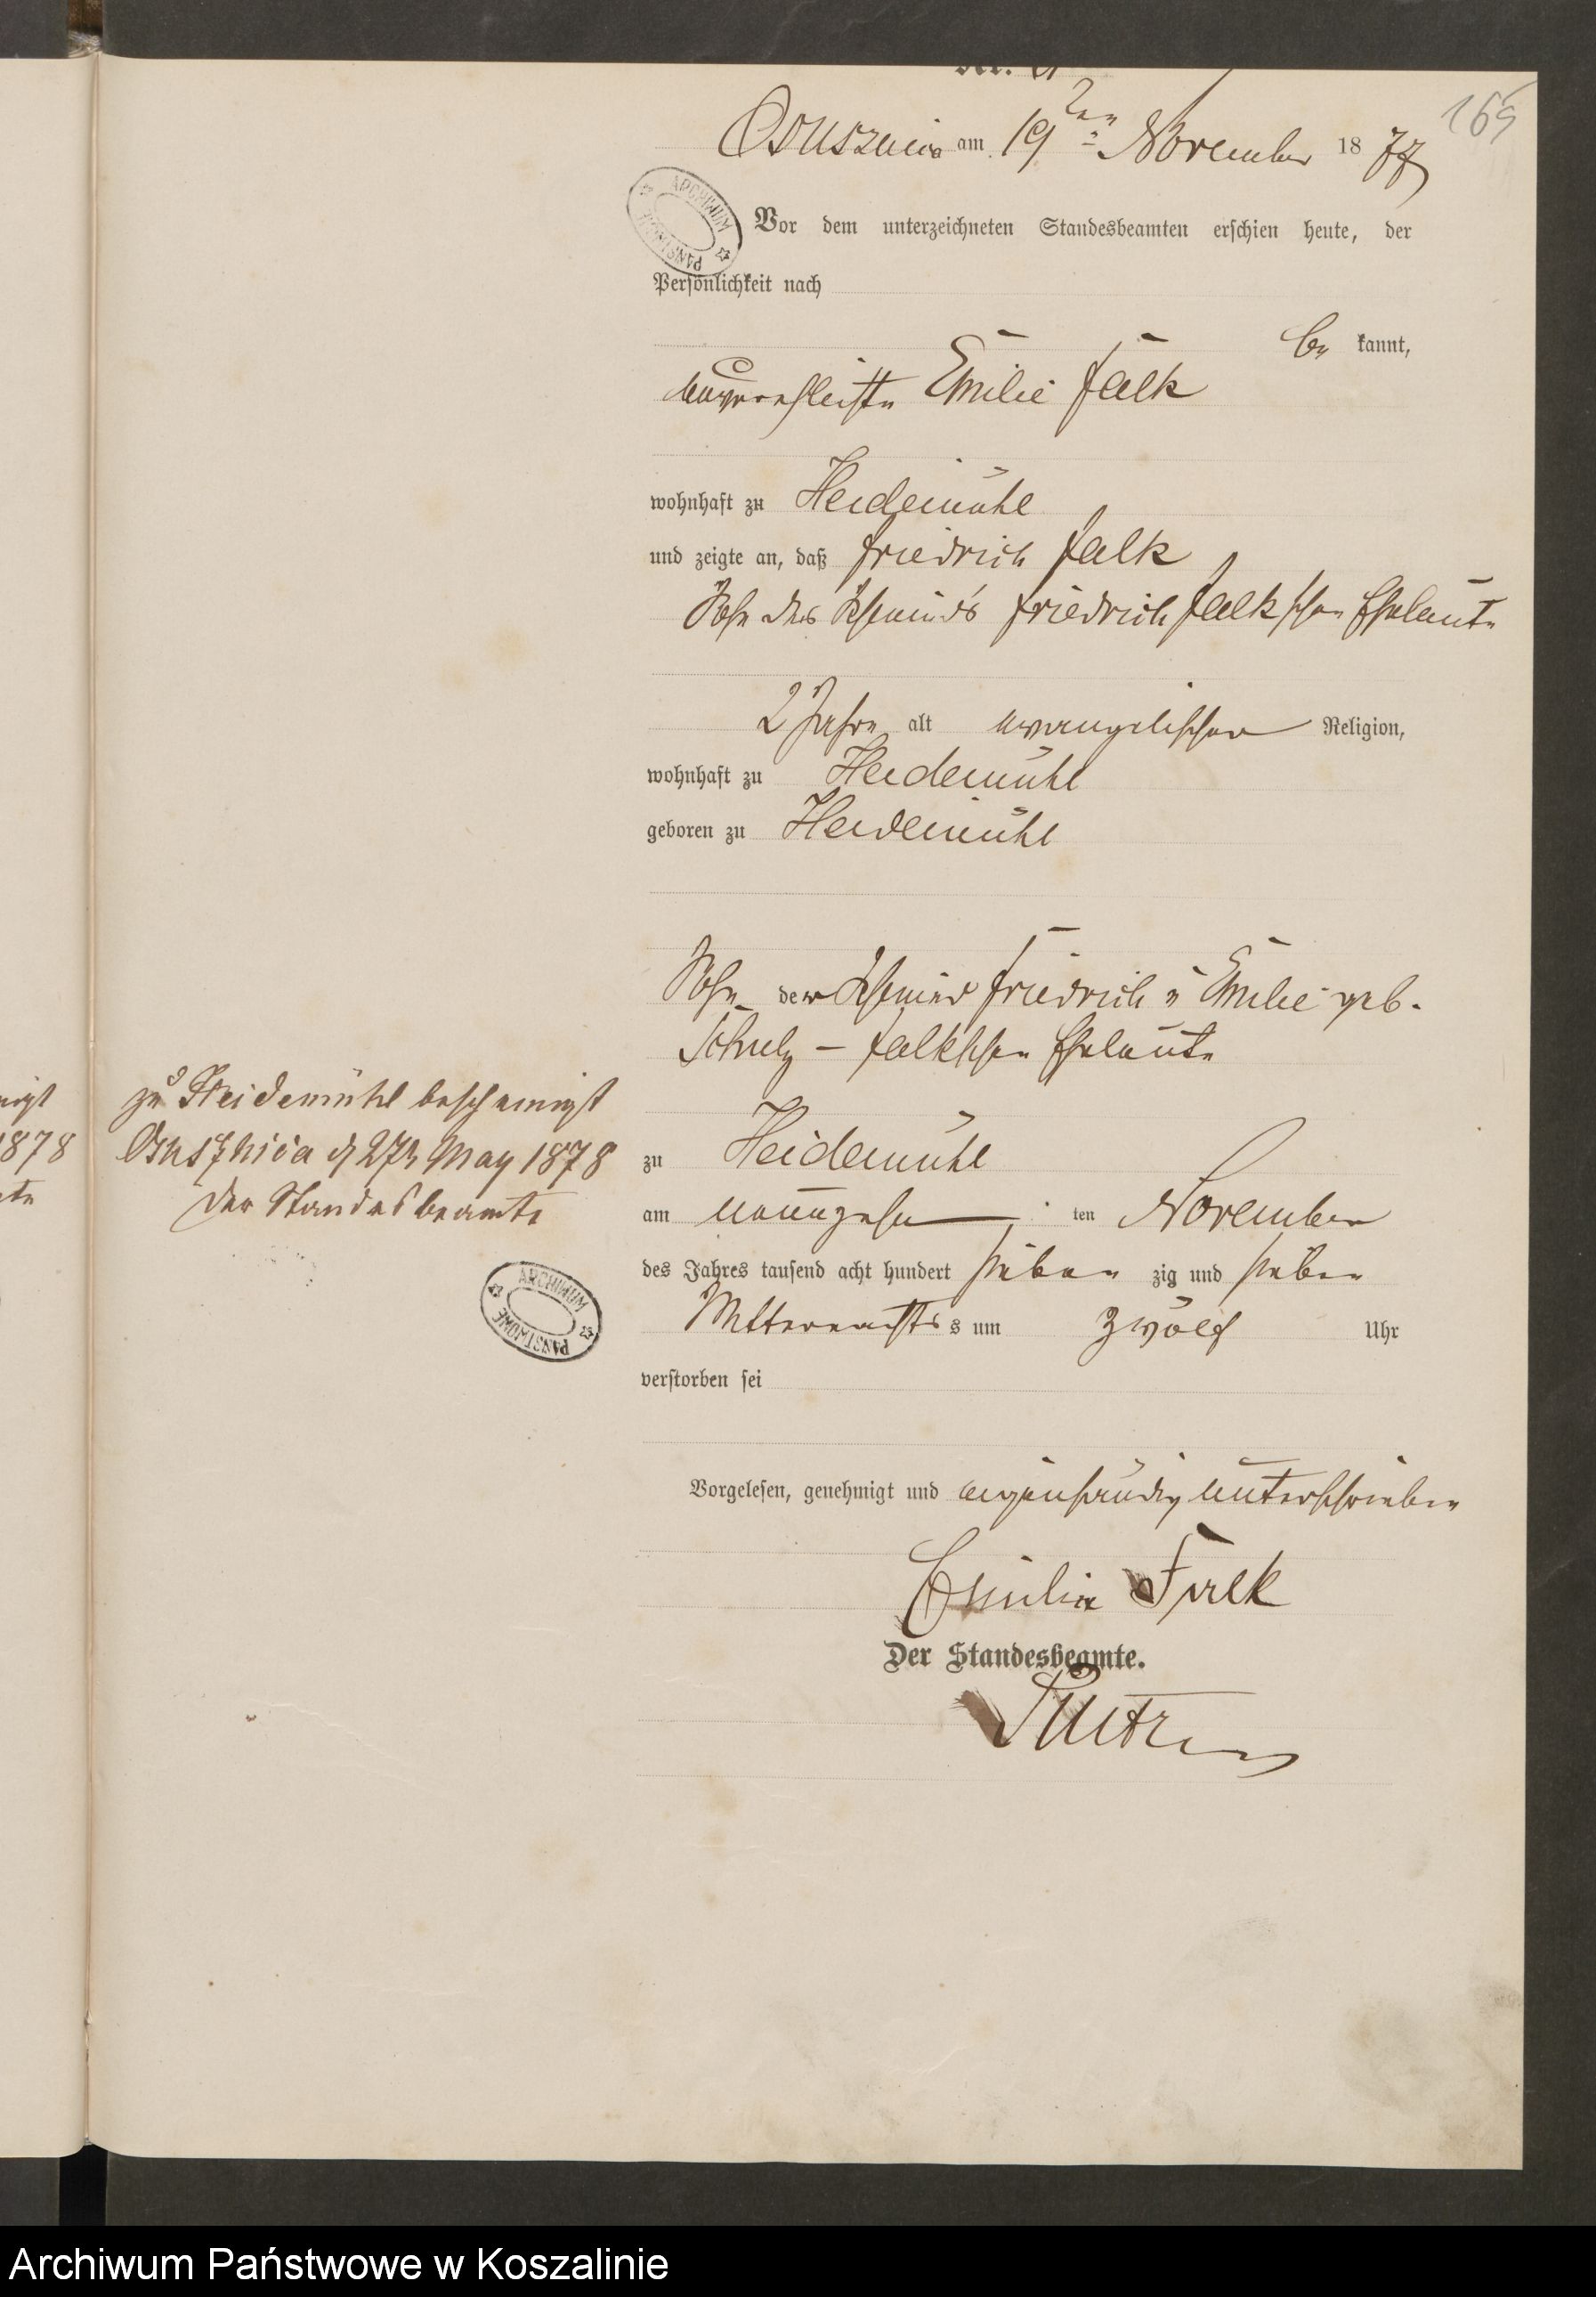 165
Osusznica am 19ten November 1877
Vor dem unterzeichneten Standesbeamten erschien heute, der
Persönlichkeit nach
be kannt,
unverehelichte Emilie Falk
wohnhaft zu Heidemühl
und zeigte an, daß Friedrich Falk
Sohn des Friedrich Falkschen Eheleute
2 Jahre alt evangelischer Religion,
wohnhaft zu Heidemühl
geboren zu Heidemühl
Sohn der Friedrich u Emilie geb.
Schulz - Falkschen Eheleute
zu Heidemühl
am neunzehn ten November
des Jahres tausend acht hundert sieben zig und sieben
Mitternachts s um zwölf Uhr
verstorben sei
Vorgelesen, genehmigt und eigenhändig unterschrieben
Emilie Falk
Der Standesbeamte.
zu Heidemühl bescheinigt
Osuschnica d 27n May 1878
Der Standesbeamte
1878
ARCHIWUM PAŃSTWOWE
ARCHIWUM PAŃSTWOWE
Archiwum Państwowe w Koszalinie